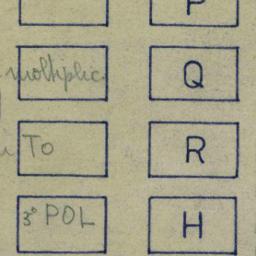 P
moltiplic. Q
To R
3° POL H